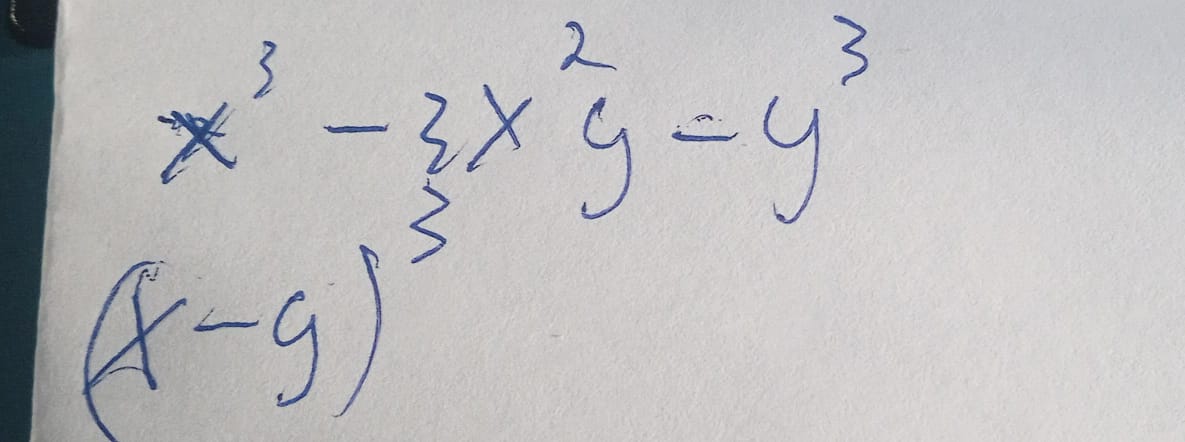 x³ - 3x²y - y³
(x-y)³